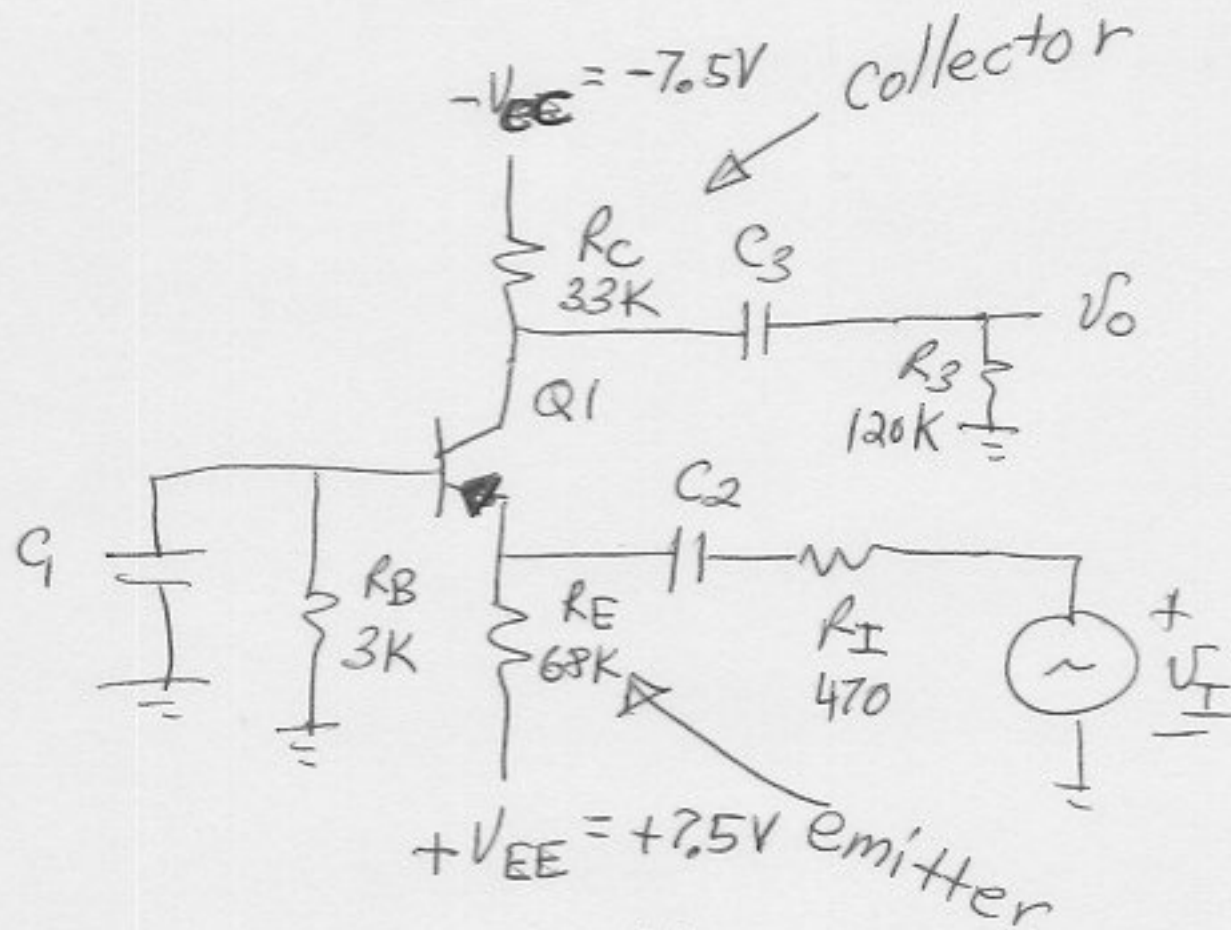 -VCC = -7.5V
collector
RC
33K
C3
vo
R3
120K
Q1
C2
C1
RB
3K
RE
68K
RI
470
+
vI
~
+VEE = +7.5V
emitter